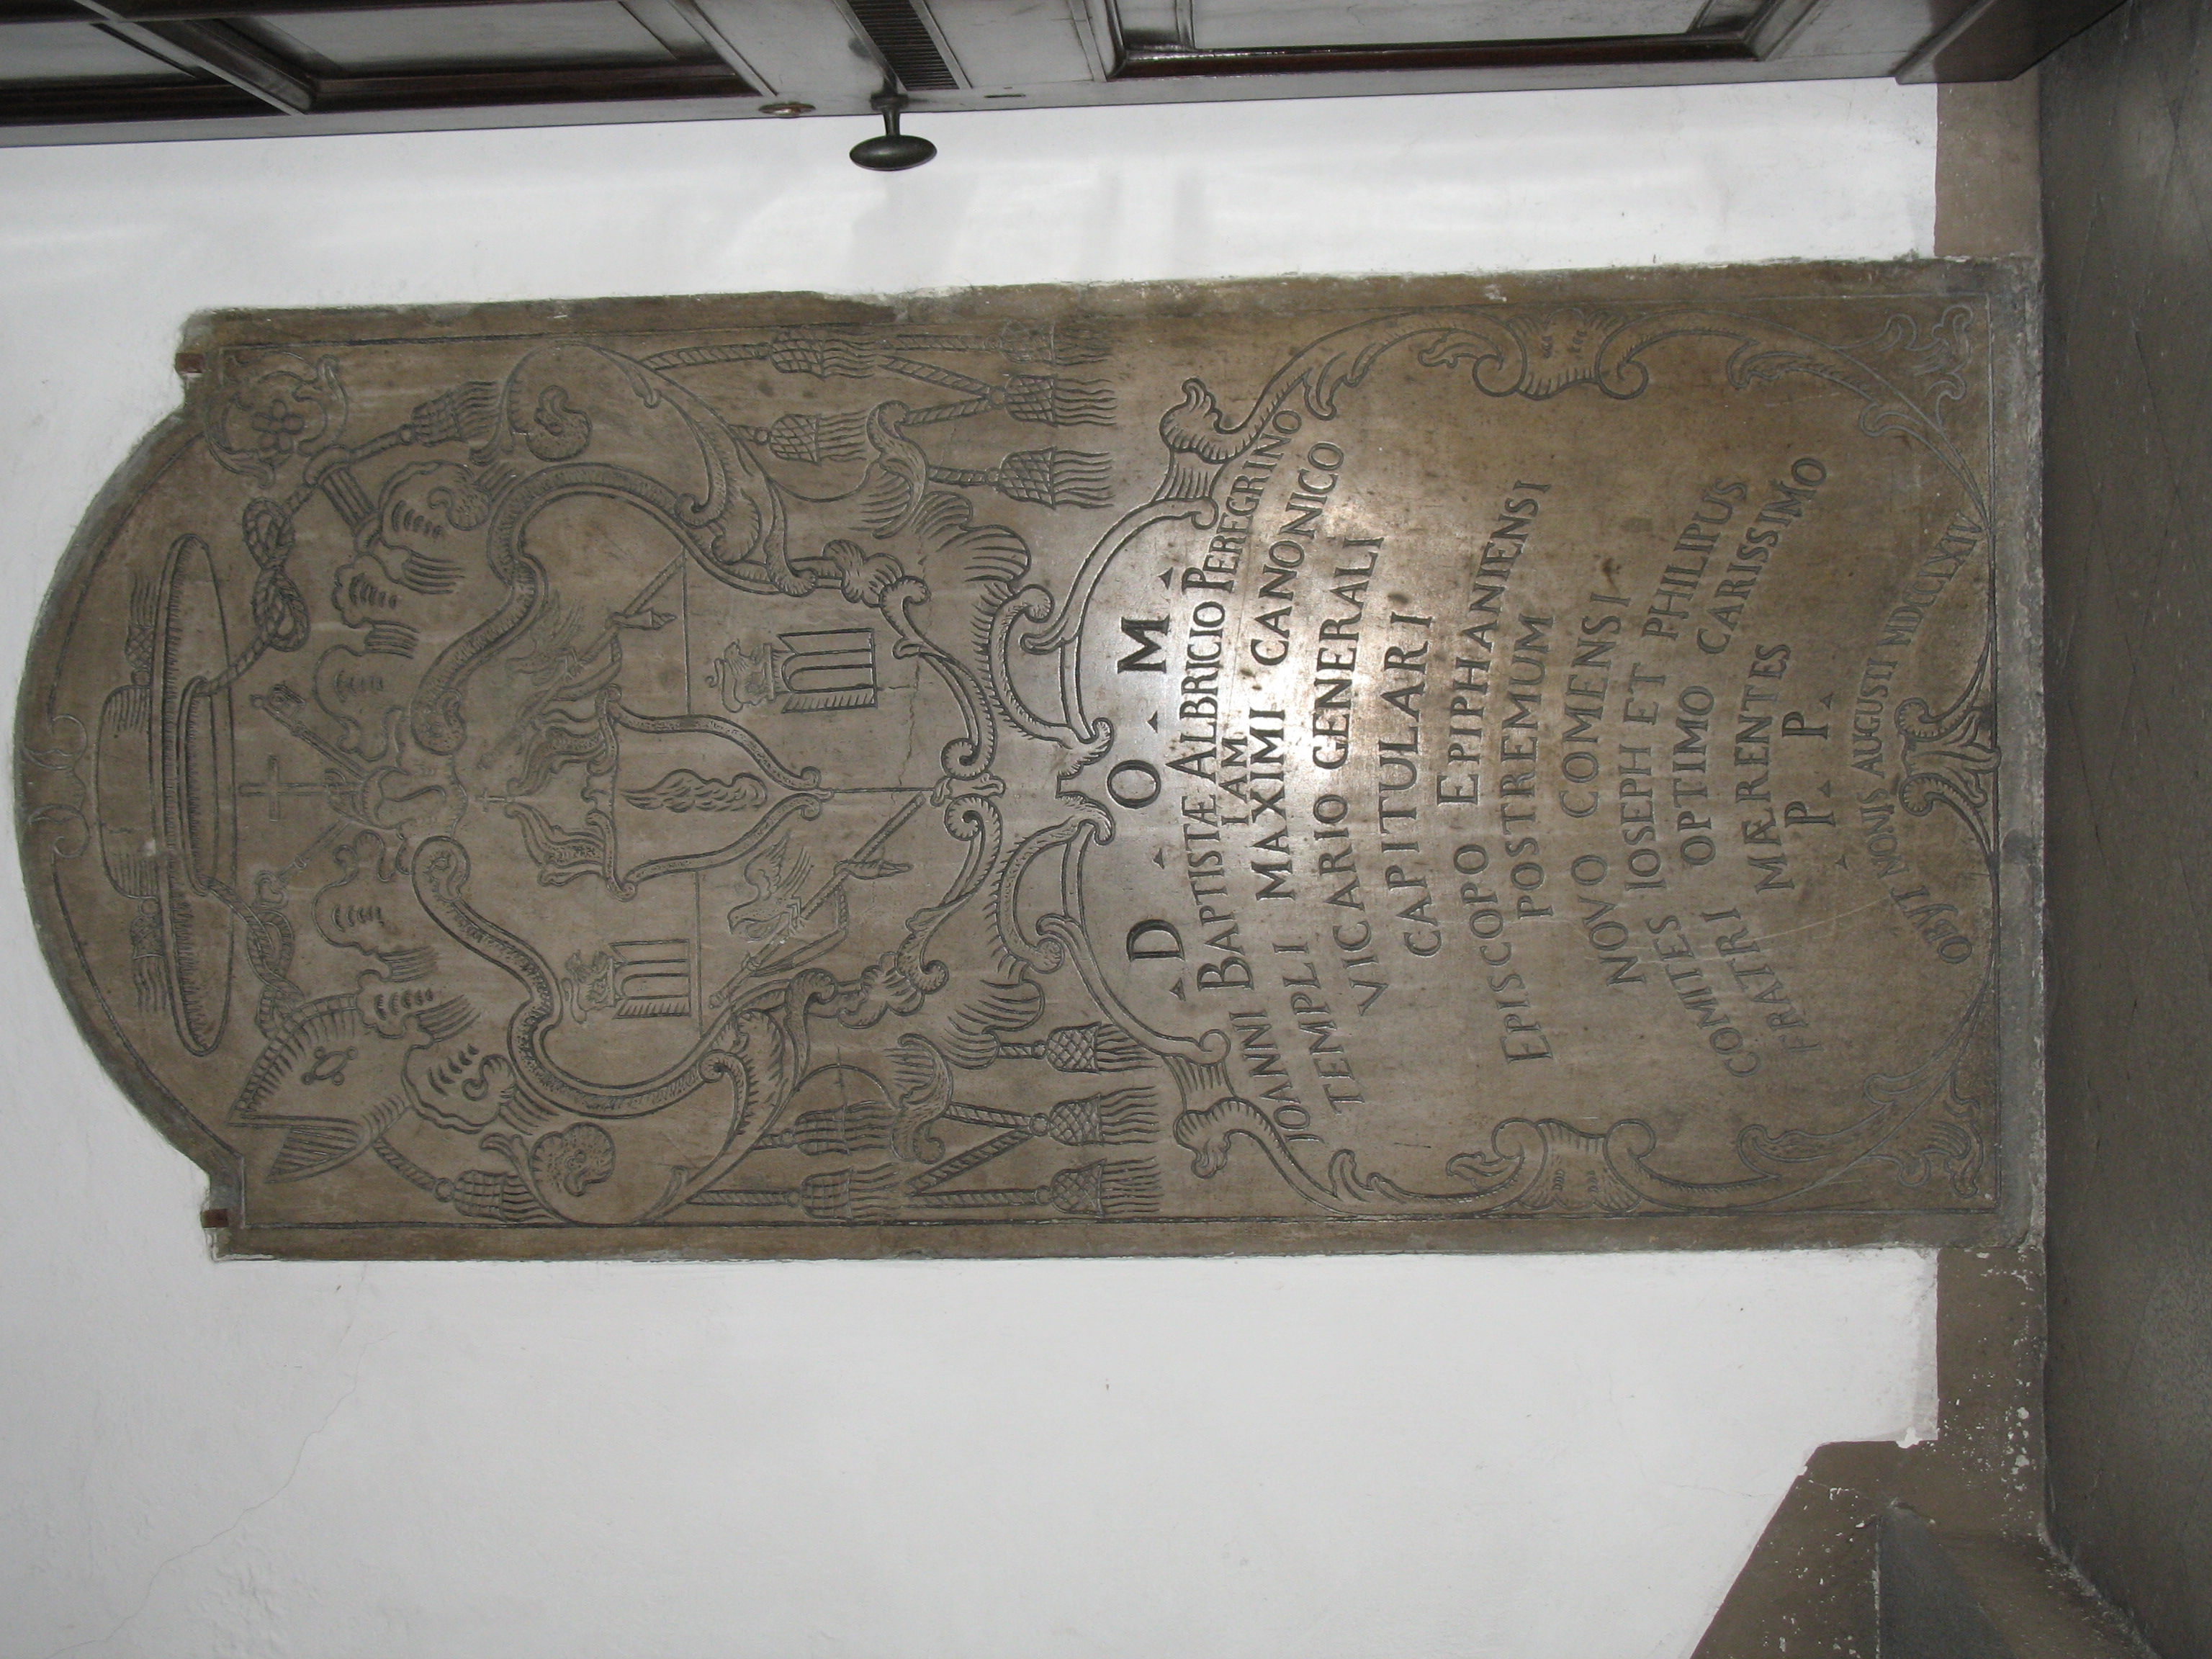 D O M
IOANNI BAPTISTÆ ALBRICIO PEREGRINO
IAM
TEMPLI MAXIMI CANONICO
VICARIO GENERALI
CAPITULARI
EPISCOPO EPIPHANIENSI
POSTREMUM
NOVO COMENSI
COMITES IOSEPH ET PHILIPUS
FRATRI OPTIMO CARISSIMO
MÆRENTES
P P
OBYT NONIS AUGUSTI MDCCLXIV